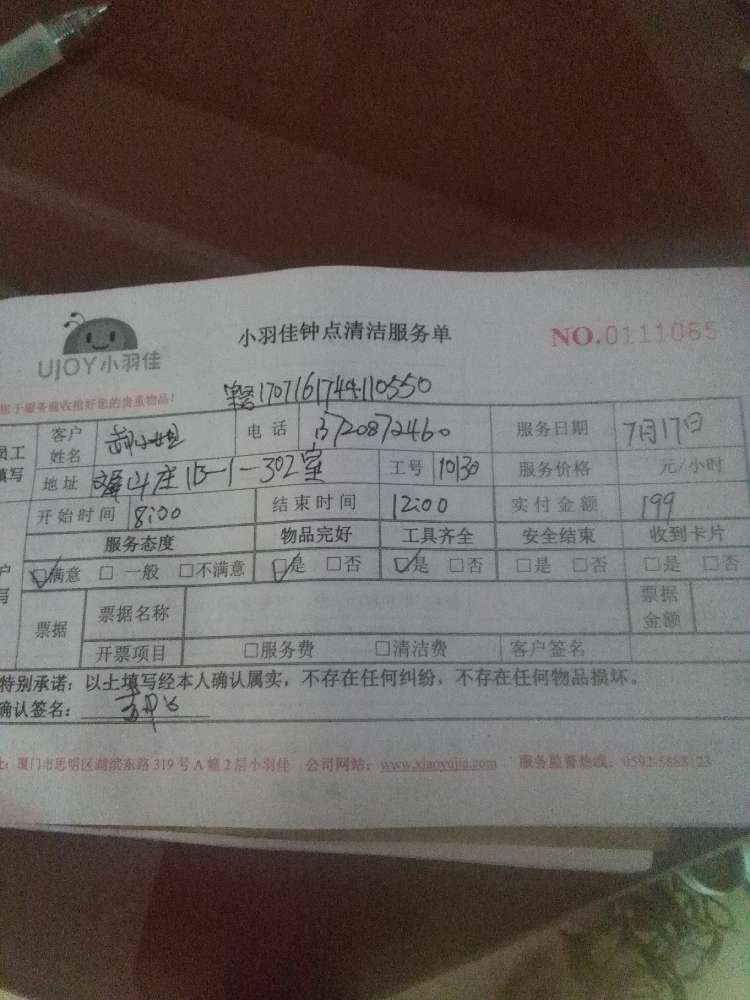 UJOY小羽佳
小羽佳钟点清洁服务单
NO.0111065
您于服务前收拾好您的贵重物品!
1707161744110550
员工填写
客户姓名 小姐 电话 13720872460 服务日期 7月17日
地址 山庄 1B-1-302室 工号 10130 服务价格 元/小时
开始时间 8:00 结束时间 12:00 实付金额 199
服务态度 物品完好 工具齐全 安全结束 收到卡片
☑满意 □一般 □不满意 ☑是 □否 ☑是 □否 □是 □否 □是 □否
票据 票据名称 票据金额
开票项目 □服务费 □清洁费 客户签名
特别承诺：以上填写经本人确认属实，不存在任何纠纷，不存在任何物品损坏。
确认签名：
址：厦门市思明区湖滨东路319号A幢2层小羽佳 公司网站：www.xiaoyujia.com 服务监督热线：0592-5888123